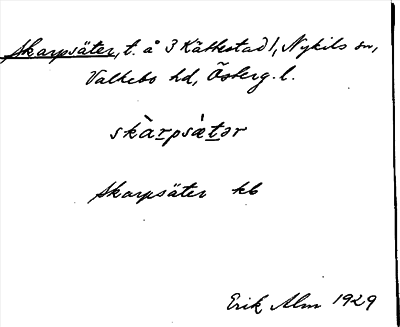 Skarpsäter, t. å 3 Kättestad 1, Nykils sn,
Valkebo hd, Österg. l.
skàr̲psæ̀t̲ər
Skarpsäter kb
Erik Alm 1929